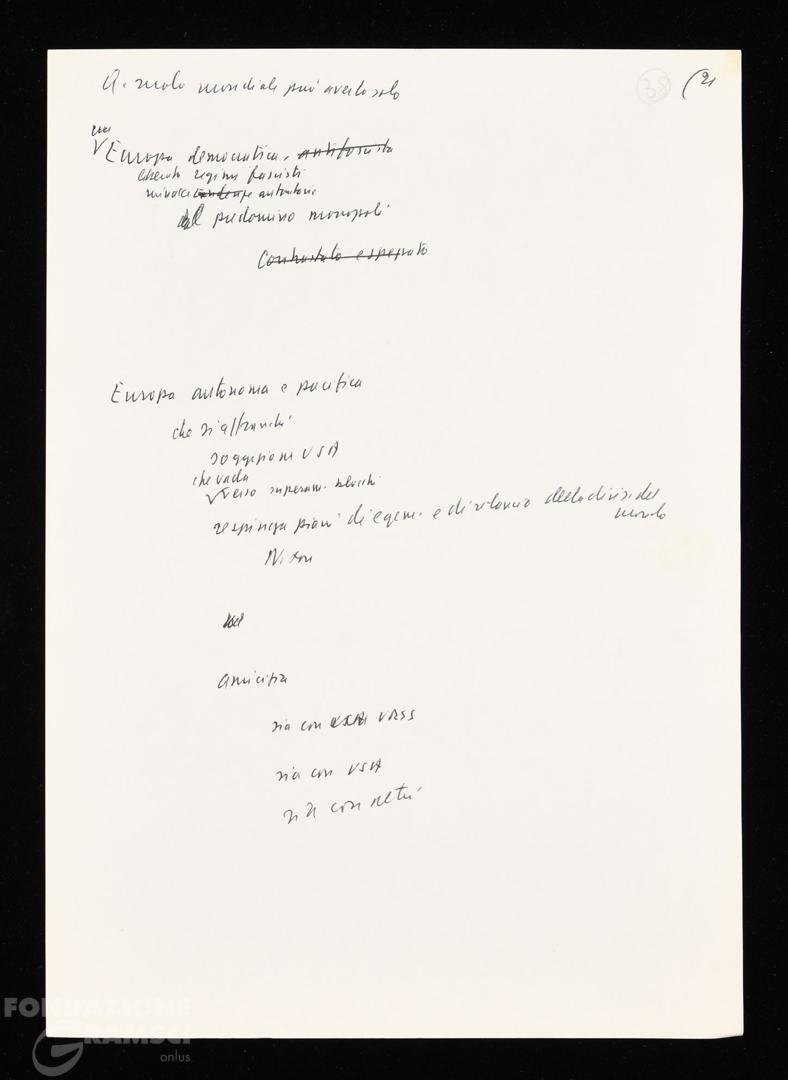 Q. ruolo mondiale può averlo solo
38 (21
una
Europa democratica, antifascista
liberata regimi fascisti
minacce tendenze autoritarie
dal predominio monopoli
Contrastato e superato
Europa autonoma e pacifica
che si affranchi
soggezione USA
che vada
verso superam. blocchi
respinga piani di egem. e di rilancio della divis. del
mondo
Nixon
amicizia
sia con URSS
sia con USA
sia con altri
FONDAZIONE
GRAMSCI
onlus